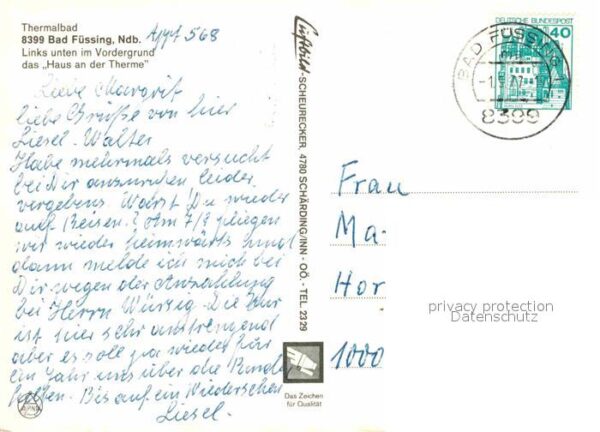 Thermalbad
8399 Bad Füssing, Ndb.
Links unten im Vordergrund
das „Haus an der Therme"
Appt 568
Liebe Margrit
liebe Grüße von hier
Liesel. Walter
Habe mehrmals versucht
bei Dir anzurufen leider
vergebens Warst Du wieder
auf Reisen? Am 7/8 fliegen
wir wieder heimwärts und
dann melde ich mich bei
Dir wegen der Anzahlung
bei Herrn Würzig. Die Kur
ist hier sehr anstrengend
aber es soll ja wieder für
ein Jahr uns über die Runden
helfen. Bis auf ein Wiedersehen
Liesel.
Luftbild-SCHEURECKER, 4780 SCHÄRDING/INN - OÖ. - TEL. 2329
Das Zeichen
für Qualität
DEUTSCHE BUNDESPOST
40
BAD FÜSSING
8399
Frau
Ma-
Hor
1000
privacy protection
Datenschutz